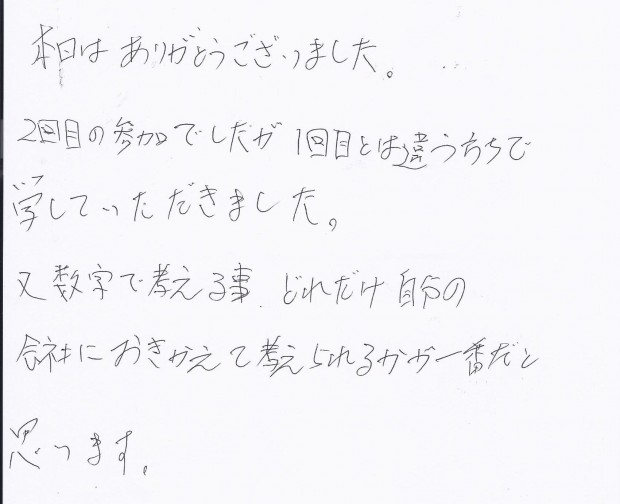 本日はありがとうございました。
2回目の参加でしたが1回目とは違うかちで
学していただきました。
又数字で考える事、どれだけ自分の
会社におきかえて考えられるかが一番だと
思います。